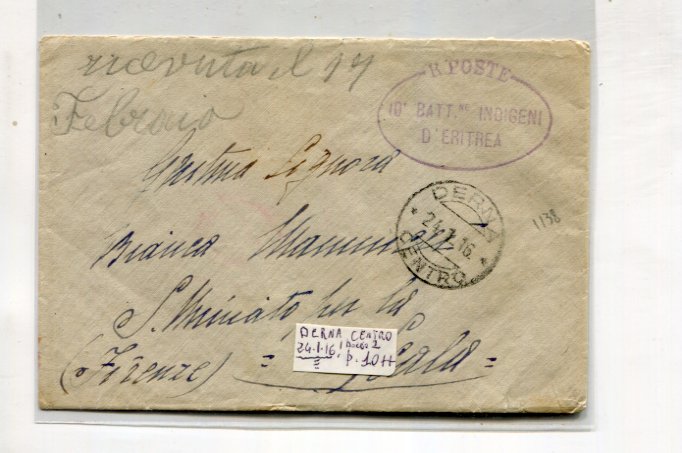 ricevuta il 17
Febraio
R. POSTE
10° BATT.NE INDIGENI
D'ERITREA
Gentma Signora
DERNA
24.1.16.
CENTRO
1138
Bianca
S. Miniato per la
Scala =
(Firenze) =
DERNA CENTRO
24.1.16, 2
p. 10 H